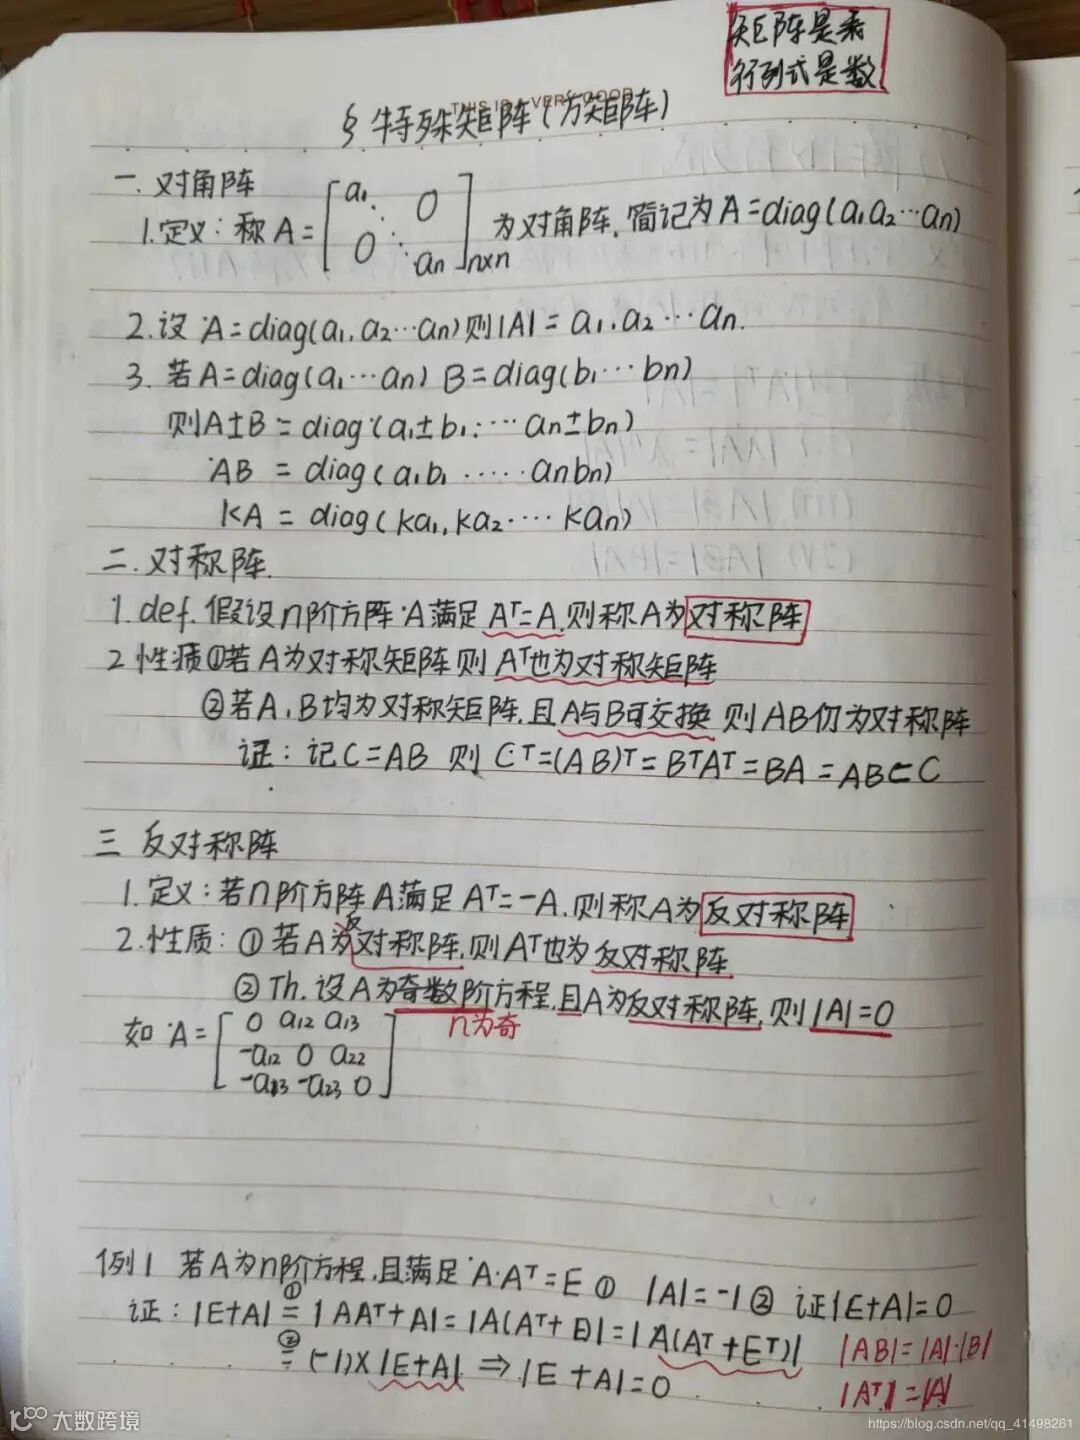 矩阵是表
行列式是数
THIS IS A VERY GOOD
§ 特殊矩阵(方矩阵)
一. 对角阵
1.定义:称 A = [a₁ 0 ⋱ 0 aₙ]n×n 为对角阵. 简记为 A=diag(a₁ a₂⋯aₙ)
2.设 A=diag(a₁,a₂⋯aₙ)则|A|= a₁.a₂⋯aₙ.
3. 若A=diag(a₁⋯aₙ) B=diag(b₁⋯bₙ)
则A±B = diag(a₁±b₁,⋯aₙ±bₙ)
AB = diag(a₁b₁ ⋯⋯aₙbₙ)
KA = diag(Ka₁,Ka₂⋯⋯Kaₙ)
二. 对称阵.
1. def. 假设n阶方阵A满足 Aᵀ=A.则称A为对称阵
2 性质①若A为对称矩阵则 Aᵀ也为对称矩阵
②若A,B均为对称矩阵,且A与B可交换 则AB仍为对称阵
证:记C=AB 则 Cᵀ=(AB)ᵀ=BᵀAᵀ=BA=AB=C
三 反对称阵
1.定义:若n阶方阵A满足Aᵀ=-A.则称A为反对称阵
2.性质:①若A为反对称阵,则Aᵀ也为反对称阵
②Th.设A为奇数阶方程,且A为反对称阵,则|A|=0
n为奇
如 A=[
0 a₁₂ a₁₃
-a₁₂ 0 a₂₂
-a₁₃ -a₂₃ 0
]
例1 若A为n阶方程,且满足 A·Aᵀ=E ① |A|=-1 ② 证|E+A|=0
证:|E+A| ①= |AAᵀ+A|=|A(Aᵀ+E)|=|A(Aᵀ+Eᵀ)|
|AB|=|A|·|B|
②= (-1)×|E+A| ⇒ |E+A|=0
|Aᵀ|=|A|
大数跨境
https://blog.csdn.net/qq_41498261